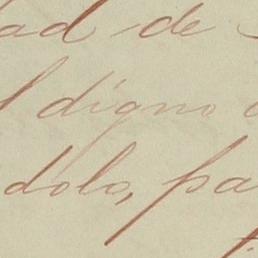 ad de
l digno
dolo, pa